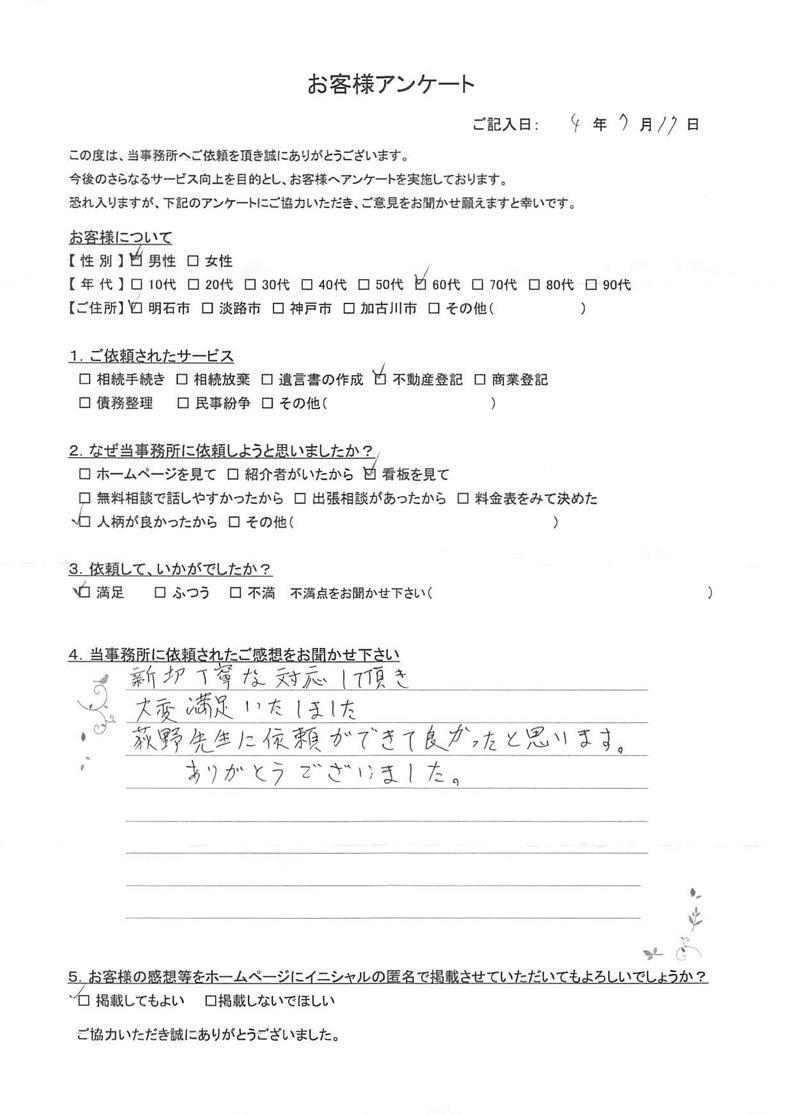 お客様アンケート
ご記入日： 4 年 7 月 17 日
この度は、当事務所へご依頼を頂き誠にありがとうございます。
今後のさらなるサービス向上を目的とし、お客様へアンケートを実施しております。
恐れ入りますが、下記のアンケートにご協力いただき、ご意見をお聞かせ願えますと幸いです。
お客様について
【 性 別 】☑ 男性 □ 女性
【 年 代 】□ 10代 □ 20代 □ 30代 □ 40代 □ 50代 ☑ 60代 □ 70代 □ 80代 □ 90代
【ご住所】☑ 明石市 □ 淡路市 □ 神戸市 □ 加古川市 □ その他( )
1．ご依頼されたサービス
□ 相続手続き □ 相続放棄 □ 遺言書の作成 ☑ 不動産登記 □ 商業登記
□ 債務整理 □ 民事紛争 □ その他( )
2．なぜ当事務所に依頼しようと思いましたか？
□ ホームページを見て □ 紹介者がいたから ☑ 看板を見て
□ 無料相談で話しやすかったから □ 出張相談があったから □ 料金表をみて決めた
☑ 人柄が良かったから □ その他( )
3．依頼して、いかがでしたか？
☑ 満足 □ ふつう □ 不満 不満点をお聞かせ下さい( )
4．当事務所に依頼されたご感想をお聞かせ下さい
新切丁寧な対応して頂き
大変満足いたしました
荻野先生に依頼ができて良かったと思います。
ありがとうございました。
5．お客様の感想等をホームページにイニシャルの匿名で掲載させていただいてもよろしいでしょうか？
☑ 掲載してもよい □掲載しないでほしい
ご協力いただき誠にありがとうございました。